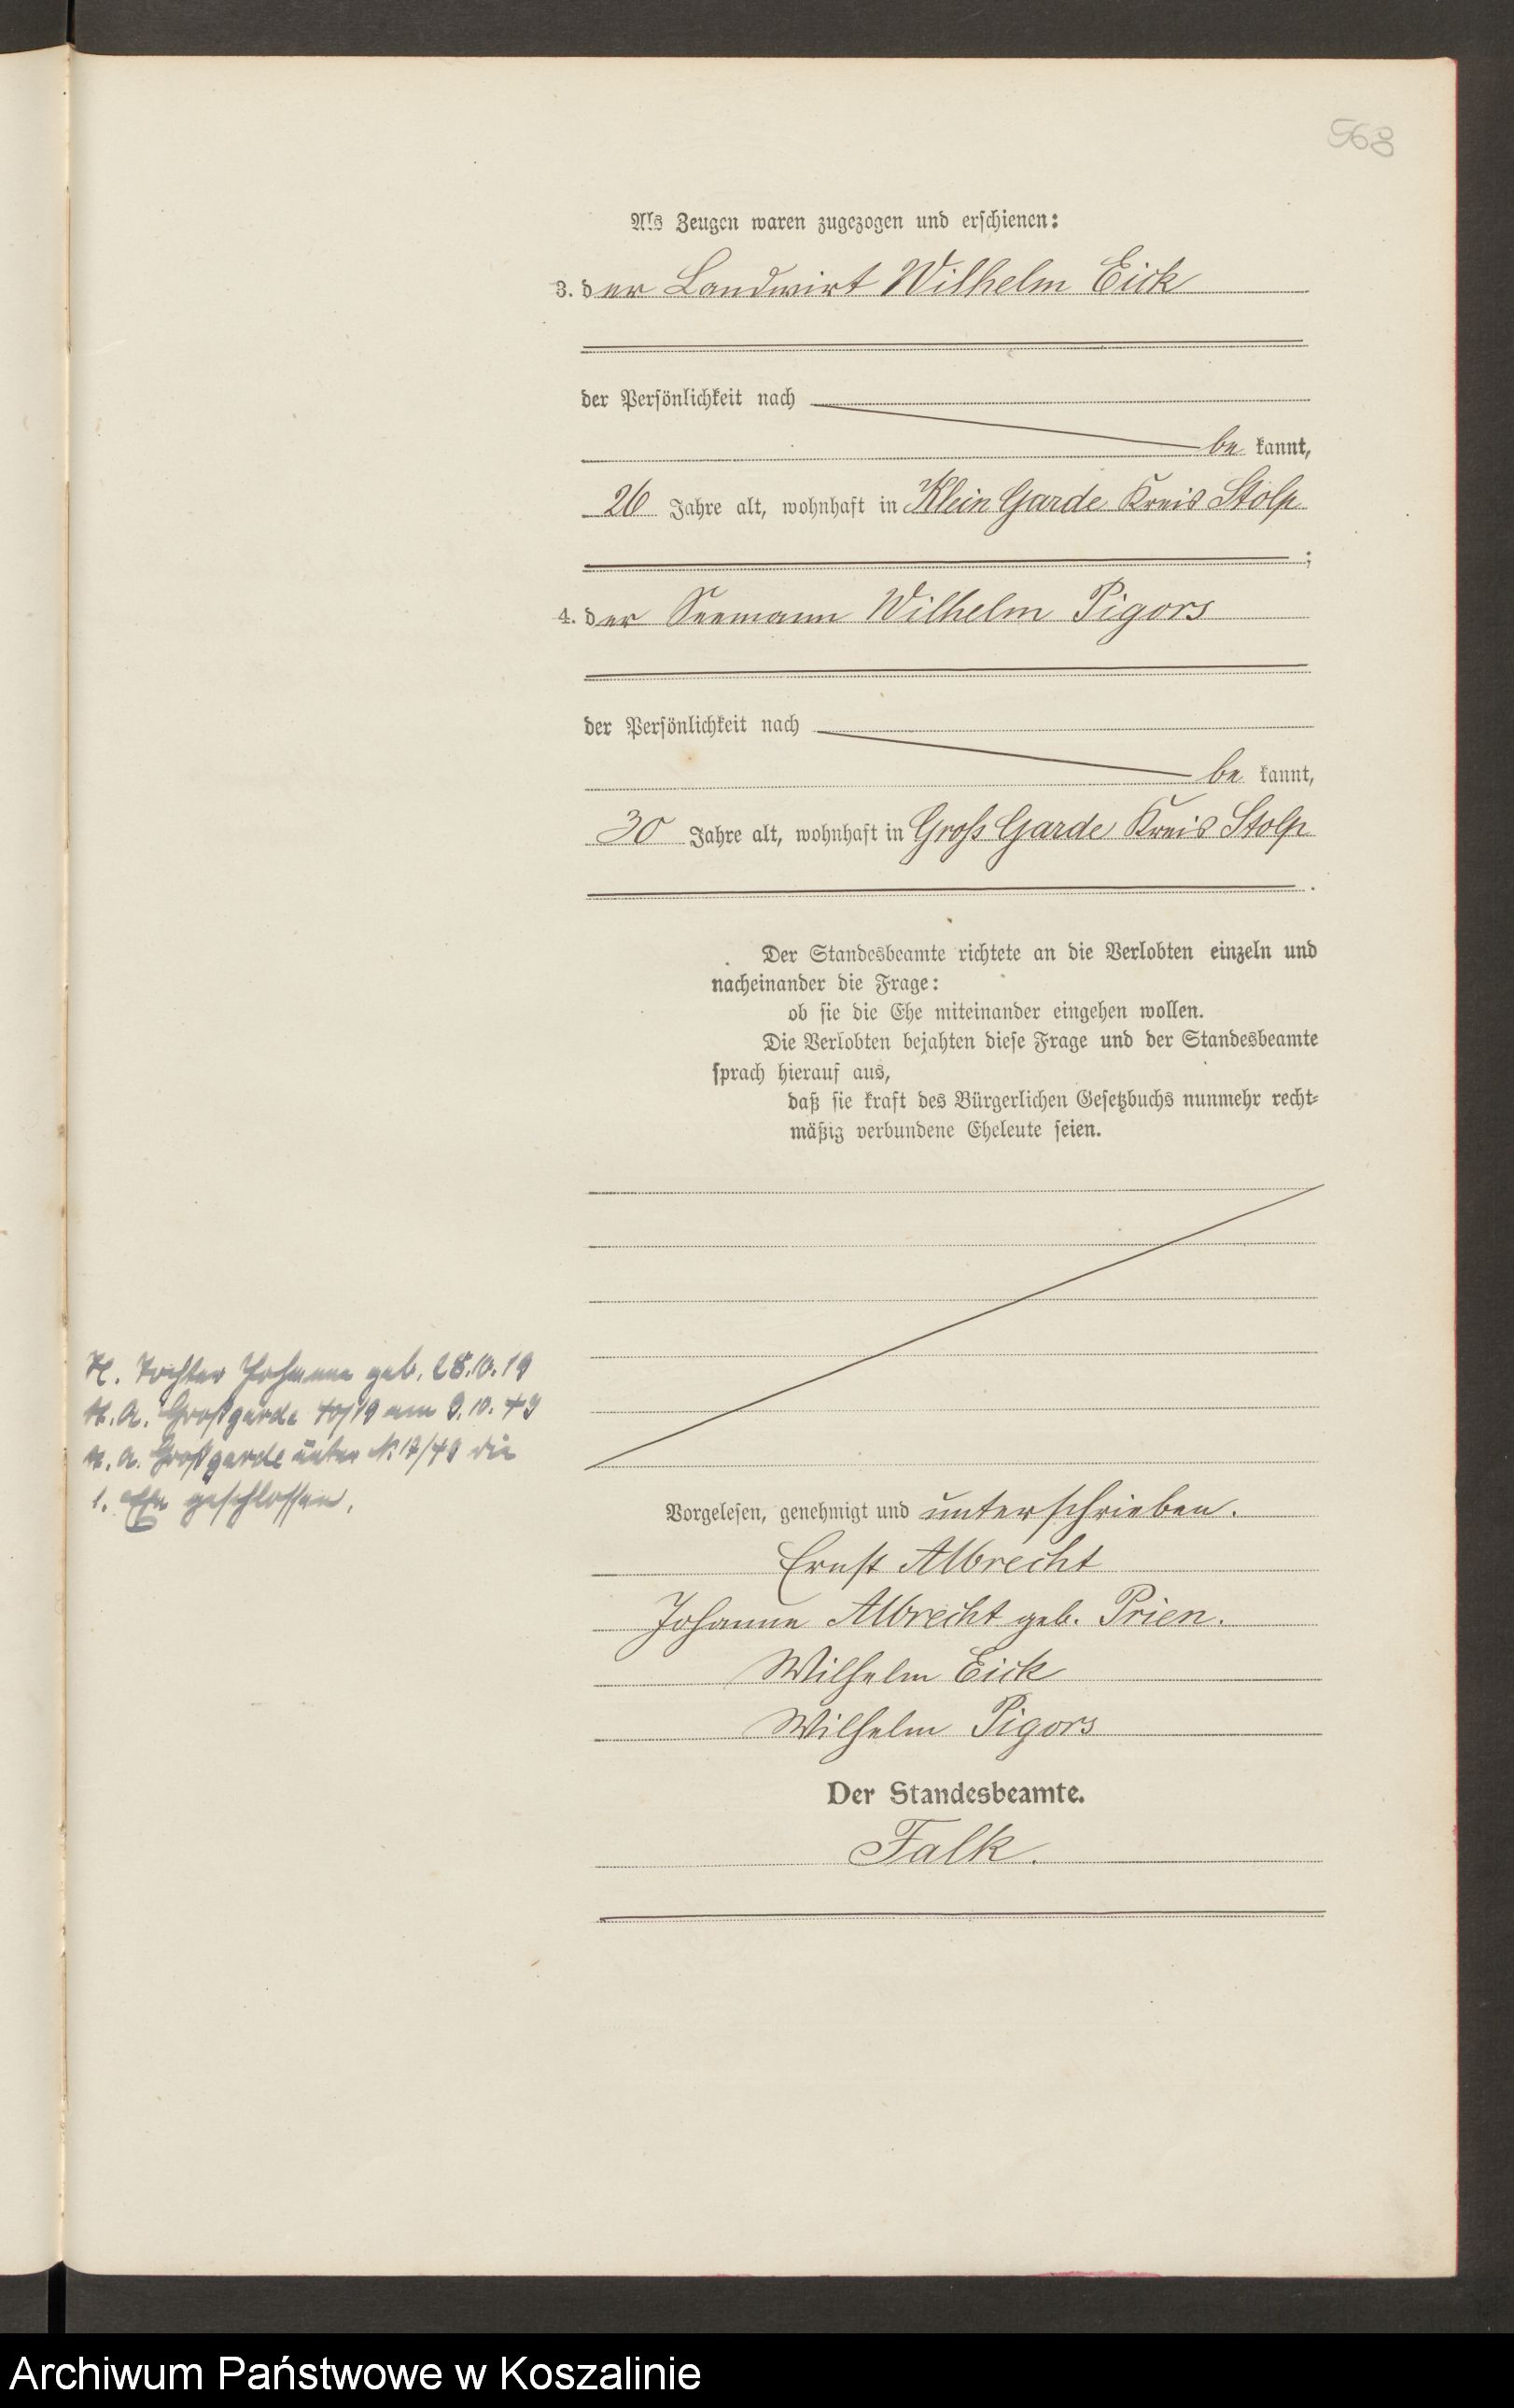 568
Als Zeugen waren zugezogen und erschienen:
3. der Landwirt Wilhelm Eick
der Persönlichkeit nach
be kannt,
26 Jahre alt, wohnhaft in Klein Garde Kreis Stolp
;
4. der Seemann Wilhelm Pigors
der Persönlichkeit nach
be kannt,
30 Jahre alt, wohnhaft in Groß Garde Kreis Stolp
.
Der Standesbeamte richtete an die Verlobten einzeln und
nacheinander die Frage:
ob sie die Ehe miteinander eingehen wollen.
Die Verlobten bejahten diese Frage und der Standesbeamte
sprach hierauf aus,
daß sie kraft des Bürgerlichen Gesetzbuchs nunmehr recht-
mäßig verbundene Eheleute seien.
Tochter Johanna geb. 28.10.19
Großgarde 40/19 am 9.10.43
Großgarde unter № 17/43 die
1. Ehe geschlossen.
Vorgelesen, genehmigt und unterschrieben.
Ernst Albrecht
Johanne Albrecht geb. Prien.
Wilhelm Eick
Wilhelm Pigors
Der Standesbeamte.
Falk.
Archiwum Państwowe w Koszalinie